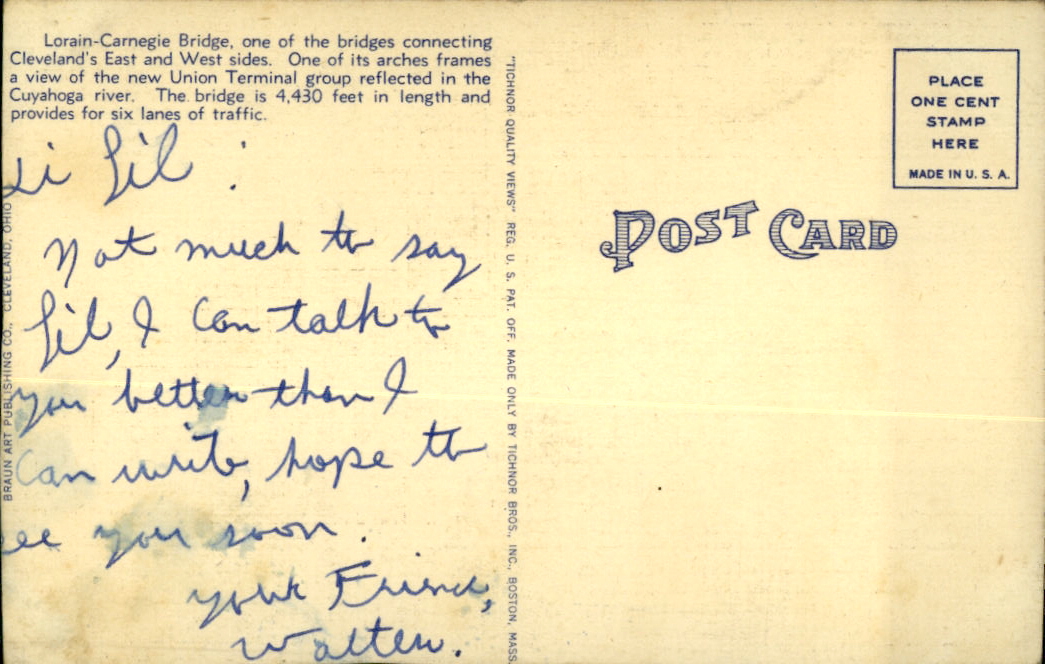 Lorain-Carnegie Bridge, one of the bridges connecting
Cleveland's East and West sides. One of its arches frames
a view of the new Union Terminal group reflected in the
Cuyahoga river. The bridge is 4,430 feet in length and
provides for six lanes of traffic.
Hi Gil :
Not much to say
Gil, I can talk to
you better than I
can write, hope to
see you soon.
your Friend,
Walter.
BRAUN ART PUBLISHING CO., CLEVELAND, OHIO
"TICHNOR QUALITY VIEWS" REG. U. S. PAT. OFF. MADE ONLY BY TICHNOR BROS., INC., BOSTON, MASS.
POST CARD
PLACE
ONE CENT
STAMP
HERE
MADE IN U. S. A.